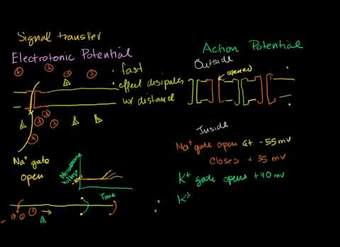 Signal transfer
Electrotonic Potential
• fast
• effect dissipates
w/ distance
Na⁺ gate
open
Membrane
Voltage
Time
Action Potential
Outside
Inside
Na⁺ gate open at -55 mv
closes + 35 mv
K⁺ gate opens +40 mv
K⁺